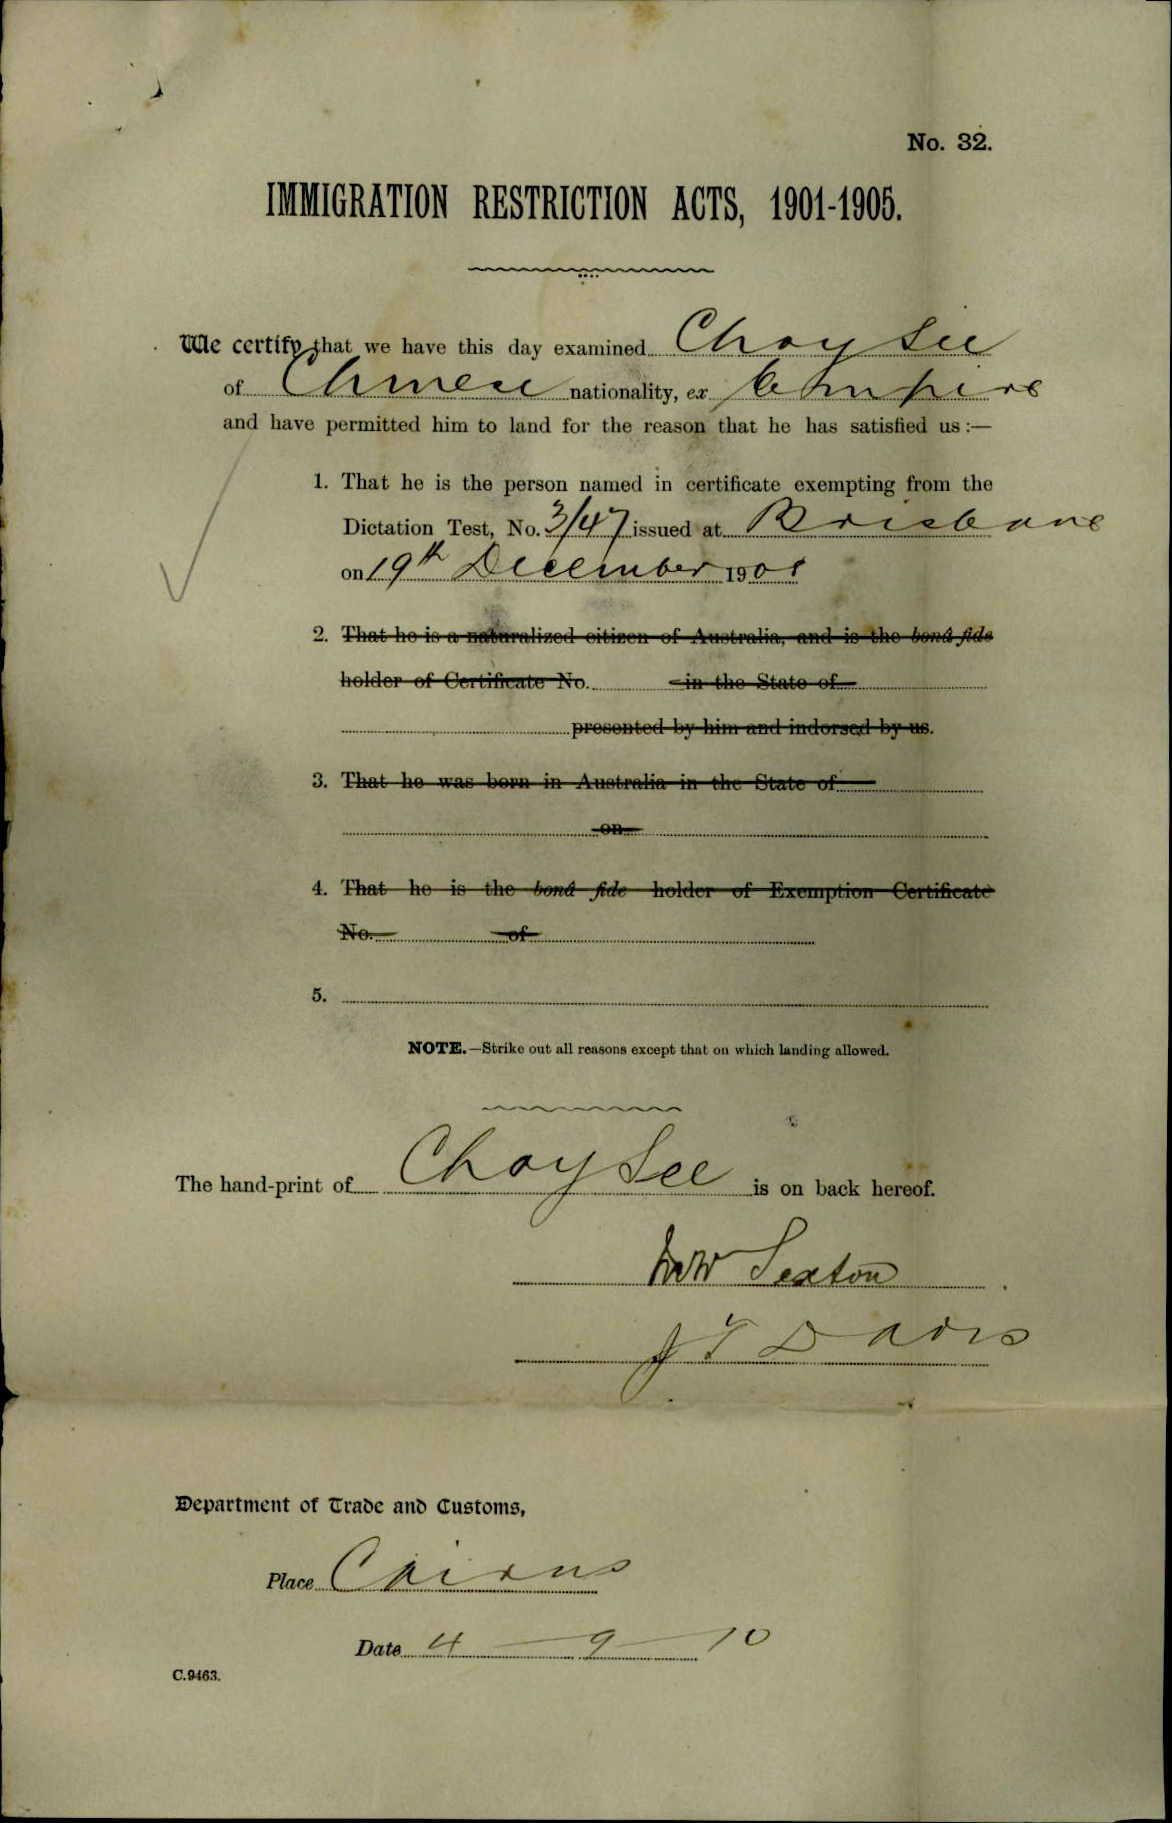 No. 32.
IMMIGRATION RESTRICTION ACTS, 1901-1905.
We certify that we have this day examined Choy See
of Chinese nationality, ex Empire
and have permitted him to land for the reason that he has satisfied us :—
1. That he is the person named in certificate exempting from the
Dictation Test, No. 3/47 issued at Brisbane
on 19th December 1908
2. That he is a naturalized citizen of Australia, and is the bonâ fide
holder of Certificate No. in the State of
presented by him and indorsed by us.
3. That he was born in Australia in the State of
on
4. That he is the bonâ fide holder of Exemption Certificate
No. of
5.
NOTE.—Strike out all reasons except that on which landing allowed.
The hand-print of Choy See is on back hereof.
Sexton
J T Davis
Department of Trade and Customs,
Place Cairns
Date 4-9-10
C.9463.